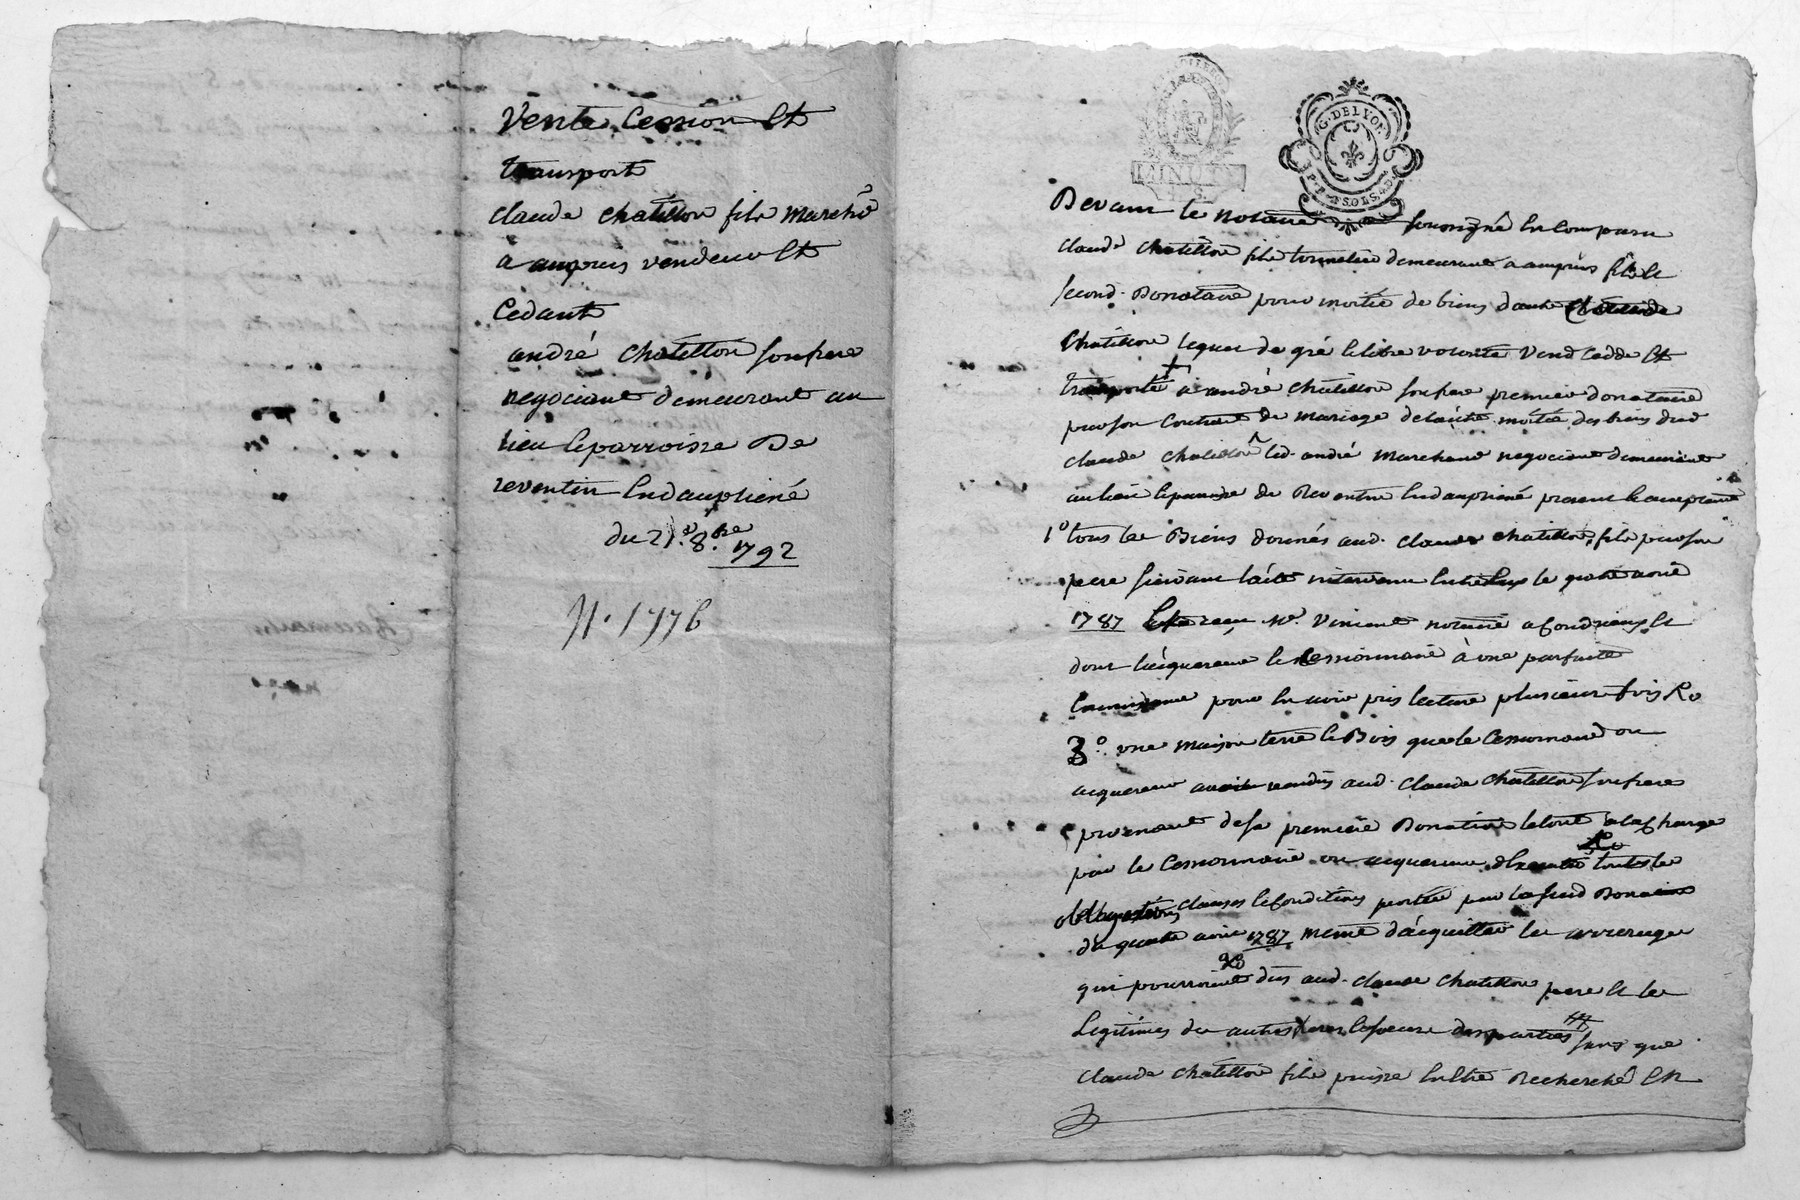 Vente Cession Et
transport
claude chatillon fils march.
a ampuis vendeur Et
Cedant
andré chatillon son frere
negociant demeurant au
lieu & parroisse De
reventin En dauphiené
du 21.e 8.bre 1792
N. 1776
G. DE LYON
Devant le notaire soussigné En comparu
claude chatillon fils tonnelier demeurant a ampuis fils Et
second Donataire pour moitié de biens d'autre
Chatillon lequel de gré & libre volonté Vend Cedde Et
transporte a andré chatillon son frere premier donataire
par son Contrat de mariage de l'autre moitié des biens dud
claude chatillon led. andré marchand negociant demeurant
au lieu & parroisse de Reventin En dauphiené present & acceptant
1° tous les Biens donnés aud. claude chatillon fils par son
pere suivant l'acte intervenu Entre Eux le quatre aout
1787 reçu M.e Vincent notaire a Condrieux Et
dont l'acquereur & Cessionnaire à une parfaite
Connoissance pour En avoir pris lecture plusieurs fois
3° une maison terre & Bois que le Cessionnaire ou
acquereur avoit vendus aud. claude chatillon son frere
provenant de sa premiere Donation le tout a la Charge
par le Cessionnaire ou acquereur d'Executer toutes les
obligations clauses & Conditions portées par la susd Donation
du quatre aout 1787 meme d'acquitter les arrerages
qui pourroient dus aud. claude chatillon pere Et les
Legitimes des autres freres & soeurs des parties sans que
claude chatillon fils puisse Entre Recherché En